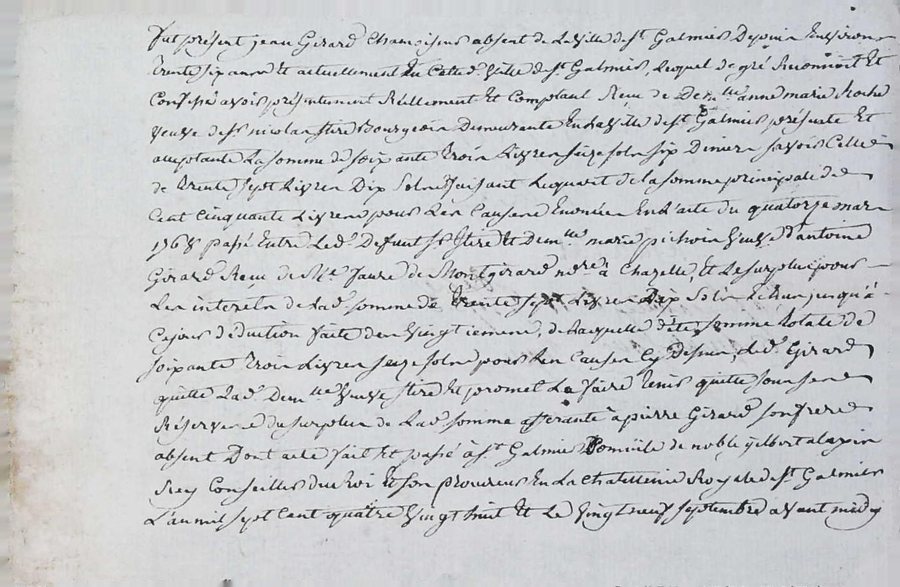 fut présent jean Girard Chamoiseur absent de la ville de st Galmier Depuis Environ
trente six ans et actuellement En Cette de ville de st Galmier, lequel de gré Reconnoit Et
Confesse avoir présentement Réellement Et Comptant Reçu de Dem.lle anne marie Roche
veuve de sr nicolas stire Bourgeois Demeurante En la ville de st Galmier présente Et
acceptante La somme de soixante trois Livres seize sols six Deniers savoir Celle
de trente sept Livres Dix Sols faisant Le quart de la somme principale de
Cent Cinquante Livres pour Les Causes Enoncées En L'acte du quatorze mars
1768 passé Entre Led. Defunt sr stire Et Dem.lle marie pichoin Veuve d'antoine
Girard Reçu de Me faure de Montgirard nore à Chazelle, Et Le surplus pour
Les interets de Lad. somme de trente sept Livres Dix Sols Echus jusqu'à
Ce jour déduction faite des Vingtiemes, de Laquelle dite somme totale de
soixante trois Livres seize sols pour Les Causes Cy Dessus, Led. Girard
quitte Lad. Dem.lle Veuve stire Et promet La faire tenir quitte sous
Réserve du surplus de Lad. somme afferante à pierre Girard son frere
absent Dont acte fait Et passé à st Galmier Domicile de noble gilbert alaxin
Rey Conseiller du Roi Et son procureur En La Chatellenie Royale de st Galmier
L'an mil sept Cent quatre Vingt huit Et Le Vingt neuf septembre avant midy